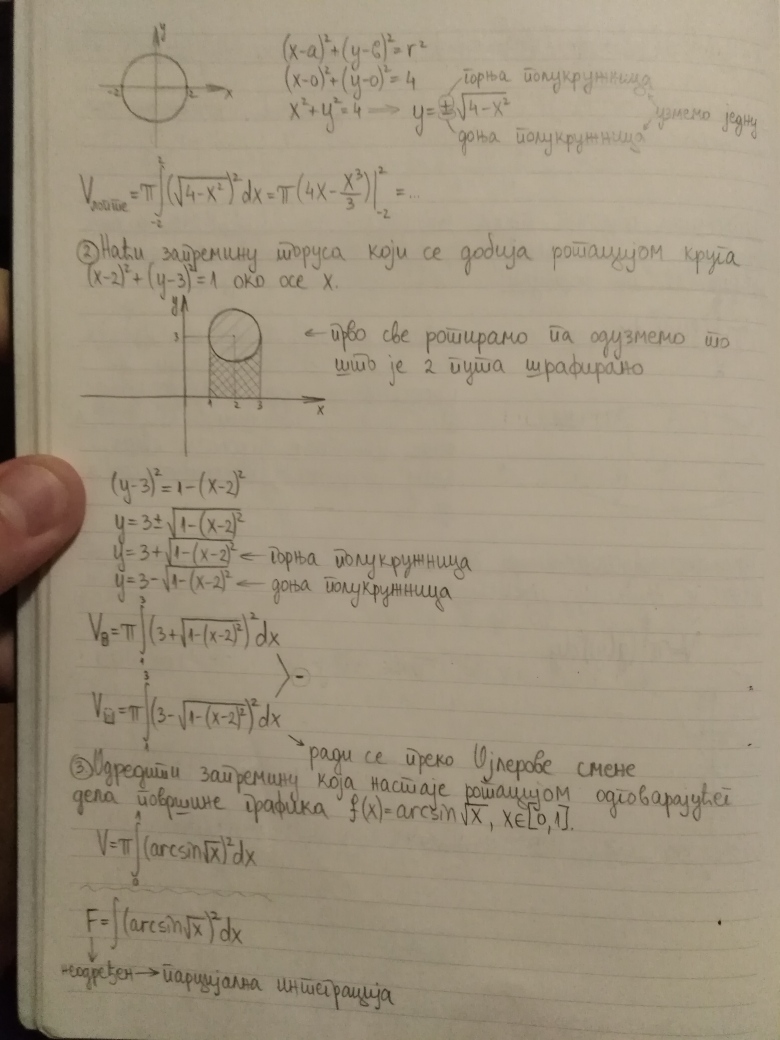 y
-2 2 x
(x-a)²+(y-b)²=r²
(x-0)²+(y-0)²=4
горња полукружница
x²+y²=4 → y=±√(4-x²)
узмемо једну
доња полукружница
V лопте = π∫₋₂² (√(4-x²))² dx = π(4x - x³/3)|₋₂² = ...
② Наћи запремину торуса који се добија ротацијом круга
(x-2)²+(y-3)²=1 око осе x.
y
3
← прво све ротирамо па одузмемо то
што је 2 пута шрафирано
1 2 3 x
(y-3)²=1-(x-2)²
y=3±√(1-(x-2)²)
y=3+√(1-(x-2)²) ← горња полукружница
y=3-√(1-(x-2)²) ← доња полукружница
V_в=π∫₁³ (3+√(1-(x-2)²))² dx
-
V_ш=π∫₁³ (3-√(1-(x-2)²))² dx
ради се преко Ојлерове смене
③ Одредити запремину која настаје ротацијом одговарајућег
дела површине графика f(x)=arcsin√x, x∈[0,1].
V=π∫₀¹ (arcsin√x)² dx
F=∫(arcsin√x)² dx
неодређен → парцијална интеграција